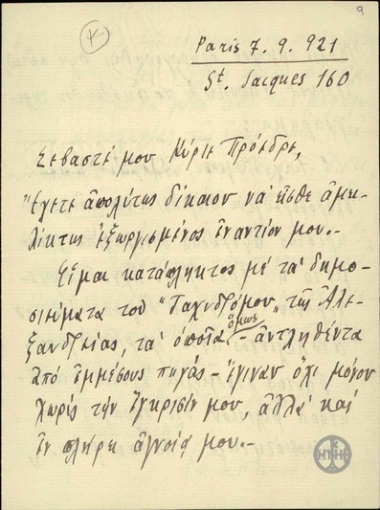 9
Κ
Paris 7. 9. 921
St. Jacques 160
Σεβαστέ μου Κύριε Πρόεδρε,
Ἔχετε ἀπολύτως δίκαιον νὰ εἶσθε ἀμει-
λίκτως ἐξωργισμένος ἐναντίον μου.-
Εἶμαι κατάπληκτος μὲ τὰ δημο-
σιεύματα τοῦ "Ταχυδρόμου" τῆς Ἀλε-
ξανδρείας, τὰ ὁποῖα ὅμως - ἀντληθέντα
ἀπὸ ἐμμέσους πηγάς - ἔγιναν ὄχι μόνον
χωρὶς τὴν ἔγκρισίν μου, ἀλλὰ καὶ
ἐν πλήρει ἀγνοίᾳ μου.-